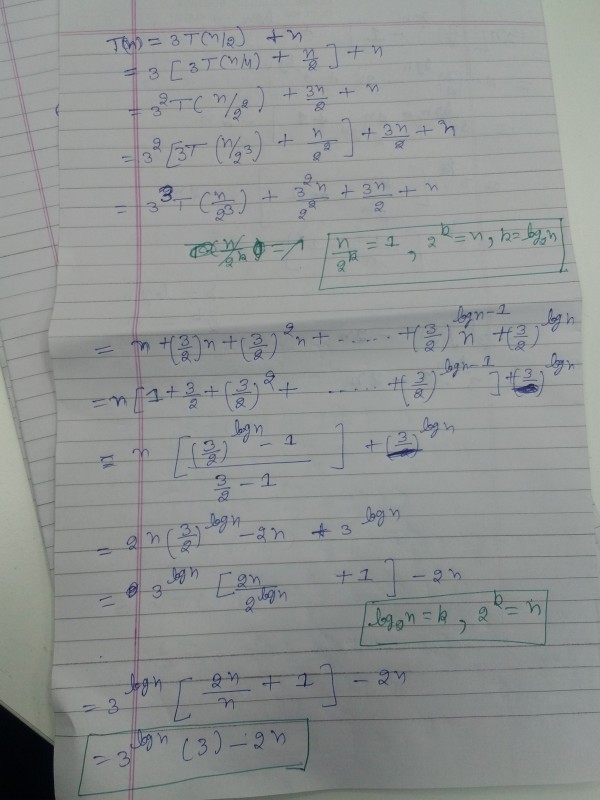 T(n) = 3T(n/2) + n
= 3 [ 3T(n/4) + n/2 ] + n
= 3^2 T( n/2^2 ) + 3n/2 + n
= 3^2 [ 3T (n/2^3) + n/2^2 ] + 3n/2 + n
= 3^3 T(n/2^3) + 3^2 n/2^2 + 3n/2 + n
n/2^k = 1 , 2^k = n , k = log_2 n
= n + (3/2) n + (3/2)^2 n + ...... + (3/2)^{log n - 1} n + (3/2)^{log n}
= n [ 1 + 3/2 + (3/2)^2 + ...... + (3/2)^{log n - 1} ] + (3)^{log n}
= n [ ((3/2)^{log n} - 1) / (3/2 - 1) ] + (3)^{log n}
= 2n (3/2)^{log n} - 2n + 3^{log n}
= 3^{log n} [ 2n/2^{log n} + 1 ] - 2n
log_2 n = k , 2^k = n
= 3^{log n} [ 2n/n + 1 ] - 2n
= 3^{log n} (3) - 2n